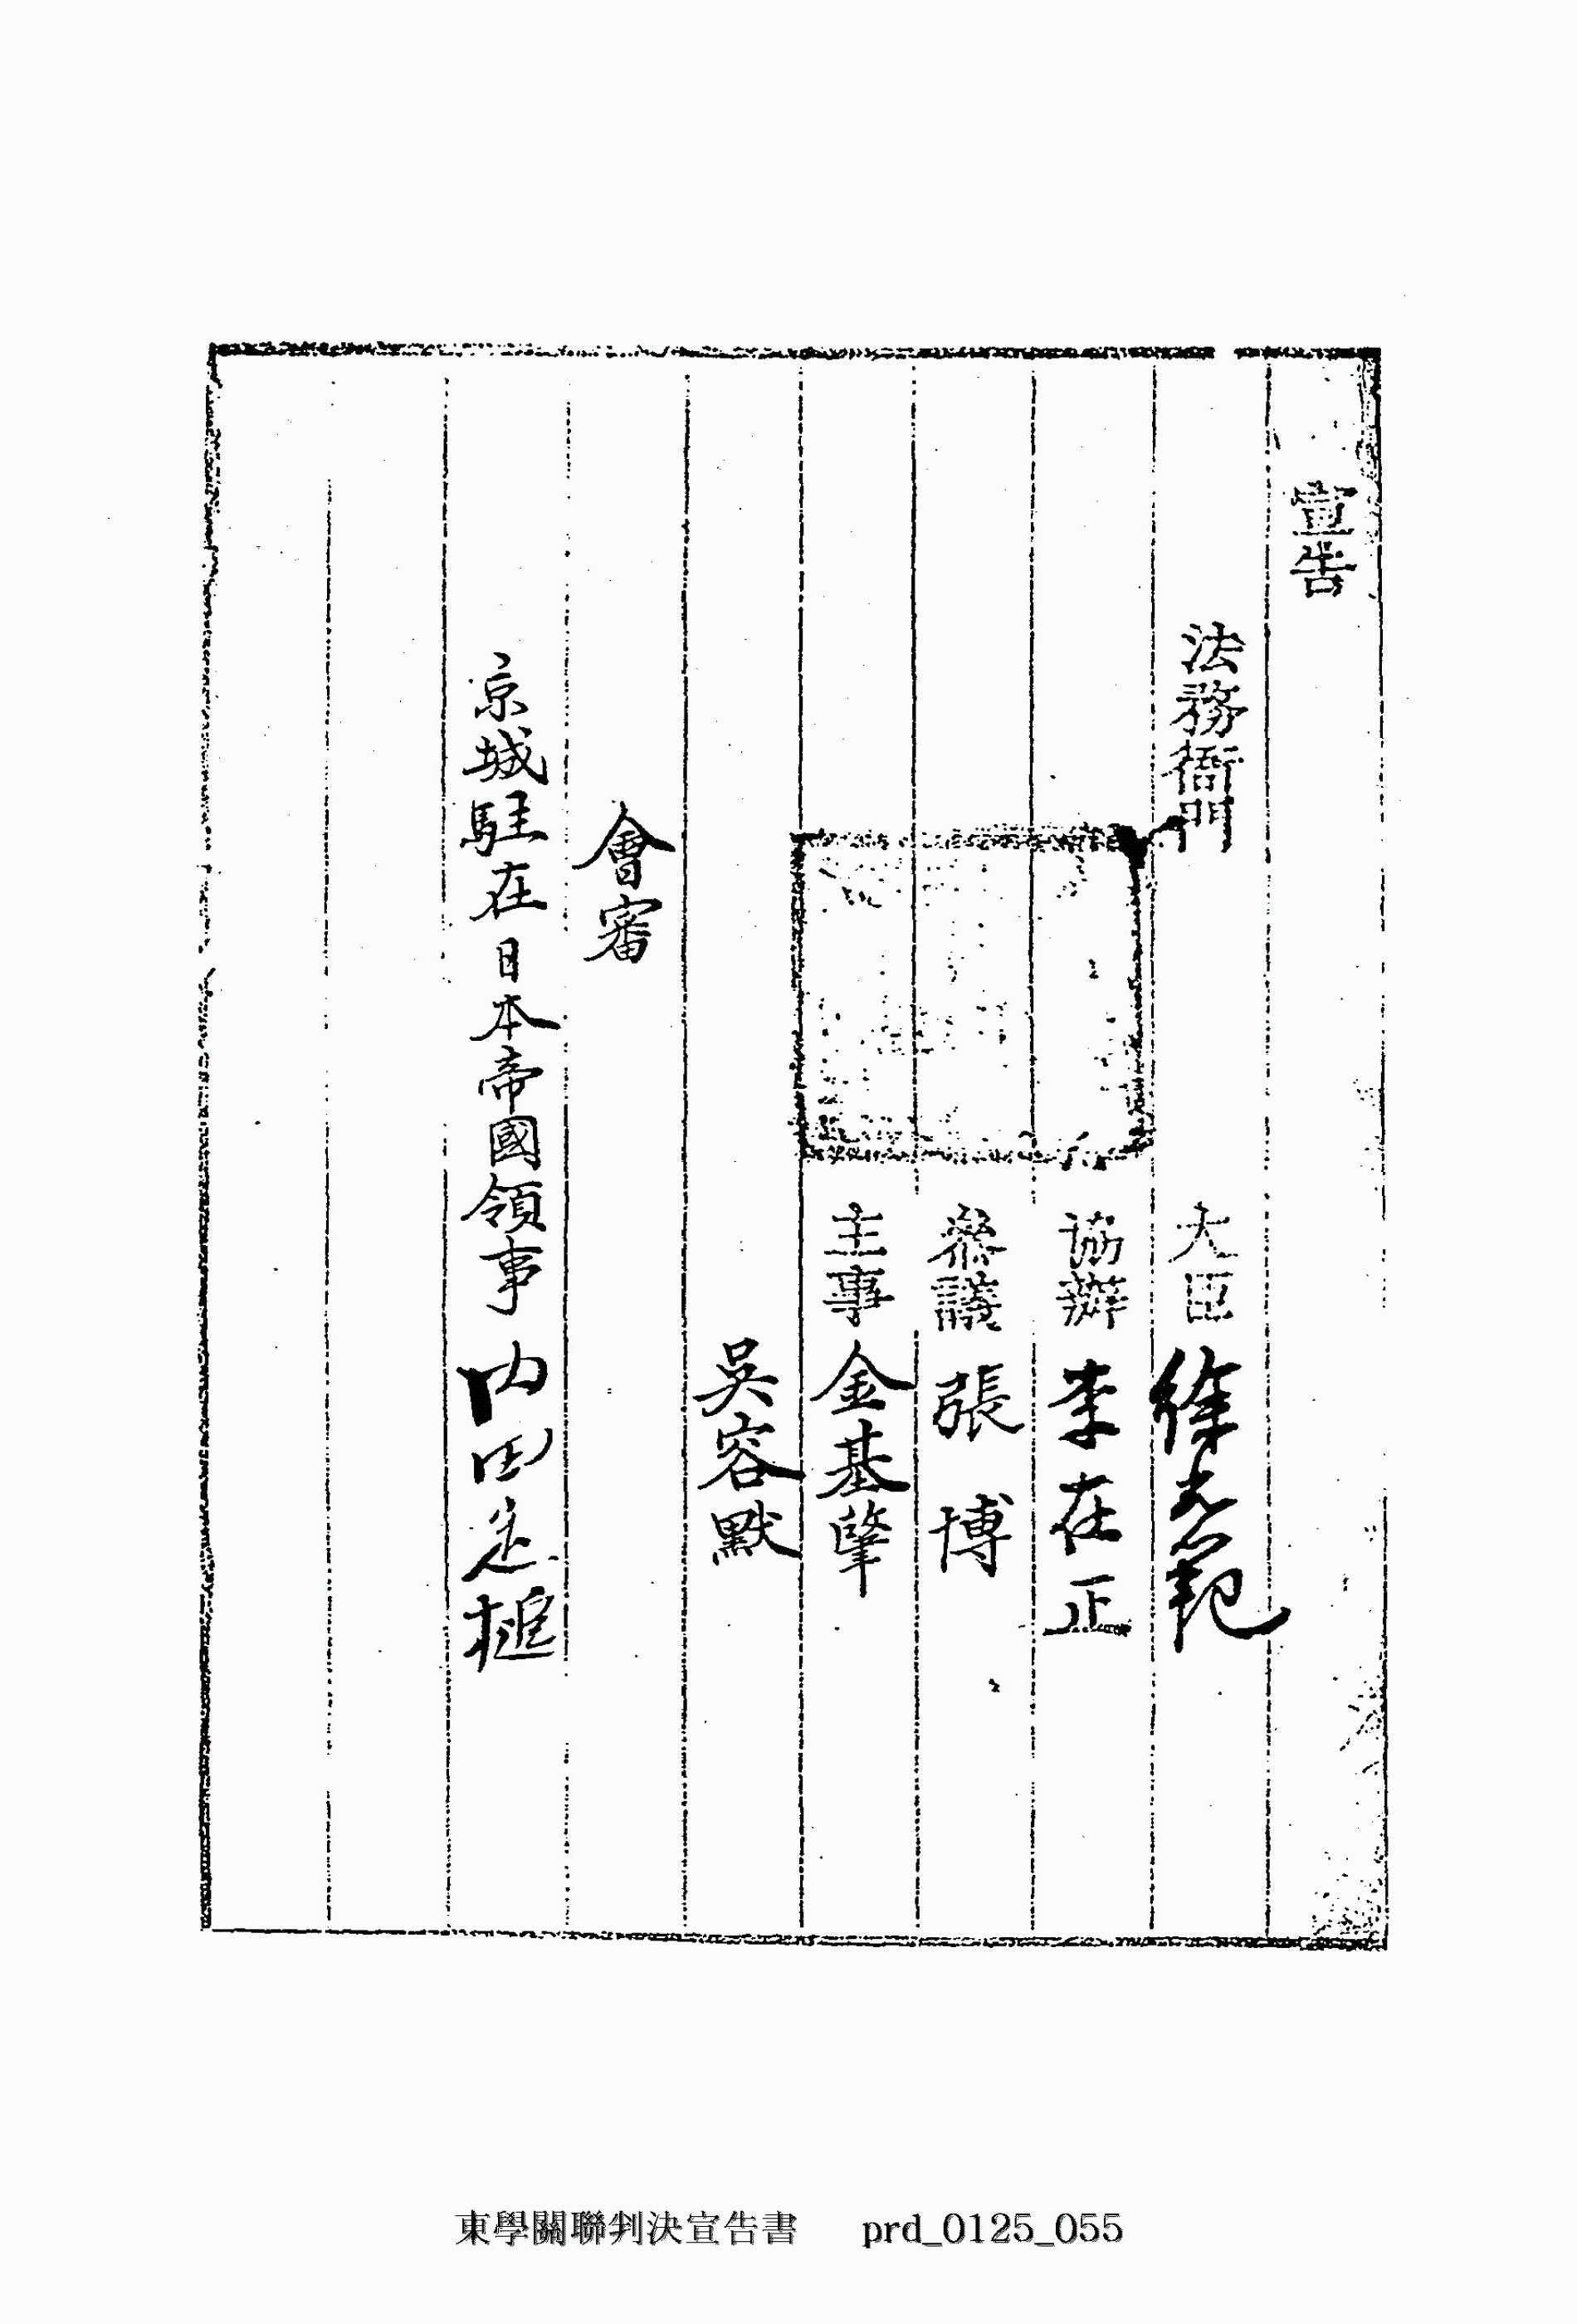 宣告
法務衙門
大臣 徐光範
協辦 李在正
參議 張博
主事 金基肇
吳容默
會審
京城駐在日本帝國領事 內田定槌
東學關聯判決宣告書 prd_0125_055